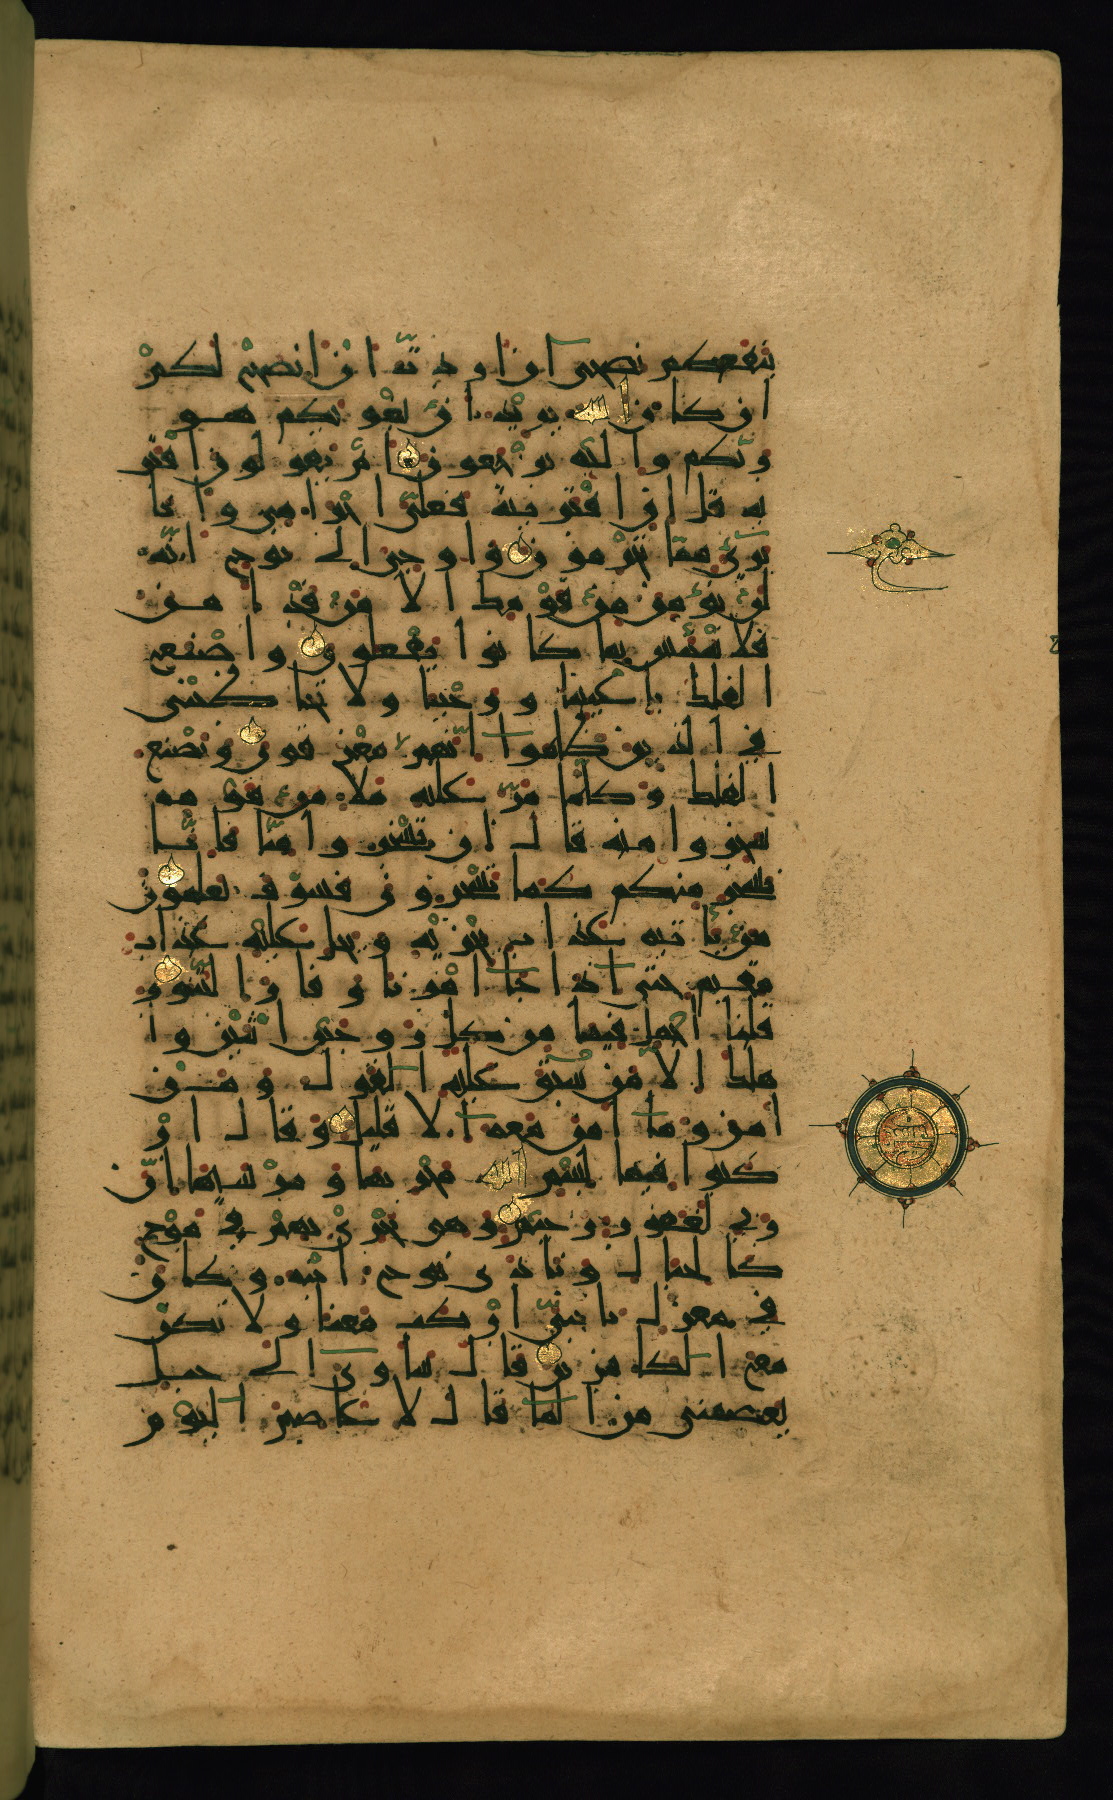 ينفعكم نصحى ان اردت ان انصح لكم
ان كان الله يريد ان يغويكم هو
ربكم واليه ترجعون ام يقولون افتر
يه قل ان افتريته فعلى اجرامى وانا
برى مما تجرمون واوحى الى نوح انه
لن يؤمن من قومك الا من قد امن
فلا تبتئس بما كانوا يفعلون واصنع
الفلك باعيننا ووحينا ولا تخاطبنى
فى الذين ظلموا انهم مغرقون ويصنع
الفلك وكلما مر عليه ملا من قومه
سخروا منه قال ان تسخروا منا فانا
نسخر منكم كما تسخرون فسوف تعلمون
من ياتيه عذاب يخزيه ويحل عليه عذاب
مقيم حتى اذا جا امرنا وفار التنور
قلنا احمل فيها من كل زوجين اثنين وا
هلك الا من سبق عليه القول ومن
امن وما امن معه الا قليل وقال ار
كبوا فيها بسم الله مجريها ومرسيها ان
ربى لغفور رحيم وهى تجرى بهم فى موج
كالجبال ونادى نوح ابنه وكان
فى معزل يا بنى اركب معنا ولا تكن
مع الكفرين قال ساوى الى جبل
يعصمنى من الما قال لا عاصم اليوم